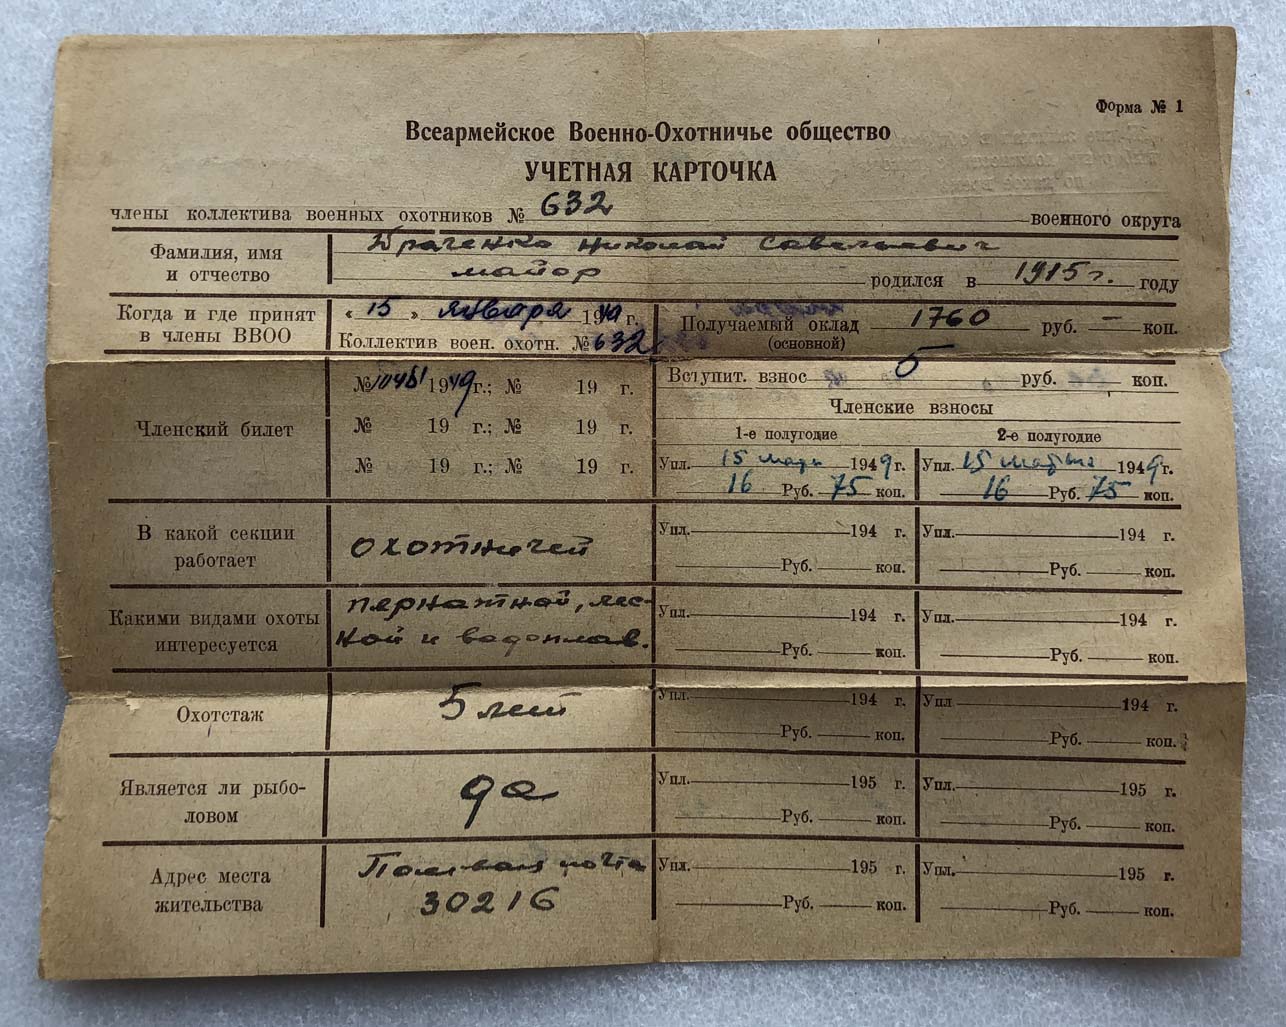 Форма № 1
Всеармейское Военно-Охотничье общество
УЧЕТНАЯ КАРТОЧКА
члены коллектива военных охотников № 632 военного округа
Фамилия, имя и отчество
Драченко Николай Савельевич
майор родился в 1915 г. году
Когда и где принят в члены ВВОО
« 15 » января 1949 г.
Коллектив воен. охотн. № 632
Получаемый оклад 1760 руб. — коп.
(основной)
Членский билет
№ 1949 г.; № 19 г.
№ 19 г.; № 19 г.
№ 19 г.; № 19 г.
Вступит. взнос 5 руб. коп.
Членские взносы
1-е полугодие 2-е полугодие
Упл. 15 марта 1949 г. Упл. 15 марта 1949 г.
16 Руб. 75 коп. 16 Руб. 75 коп.
В какой секции работает
охотничей
Упл. 194 г. Упл. 194 г.
Руб. коп. Руб. коп.
Какими видами охоты интересуется
пернатной, лес-
ной и водоплав.
Упл. 194 г. Упл. 194 г.
Руб. коп. Руб. коп.
Охотстаж
5 лет
Упл. 194 г. Упл 194 г.
Руб. коп. Руб. коп.
Является ли рыбо-
ловом
да
Упл. 195 г. Упл. 195 г.
Руб. коп. Руб. коп.
Адрес места жительства
Полевая почта
30216
Упл. 195 г. Упл. 195 г.
Руб. коп. Руб. коп.